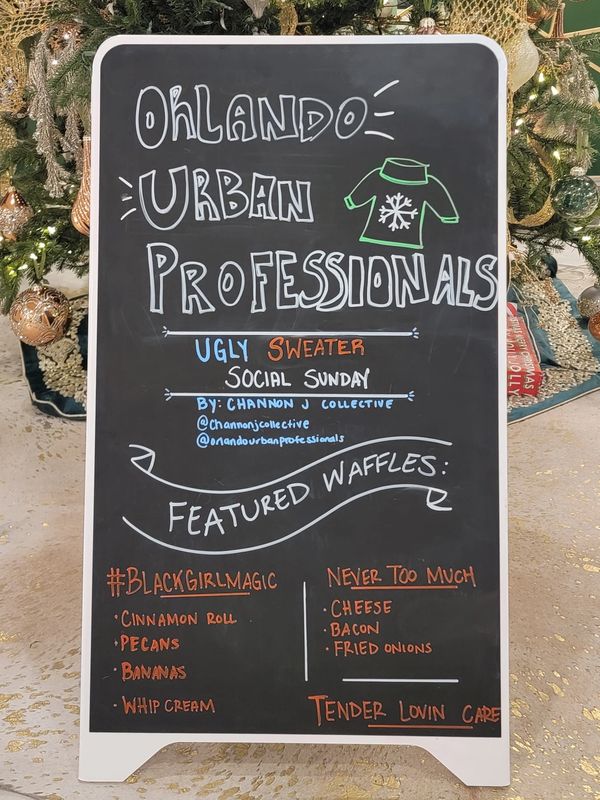 ORLANDO
URBAN
PROFESSIONALS
UGLY SWEATER
SOCIAL SUNDAY
BY: CHANNON J COLLECTIVE
@channonjcollective
@orlandourbanprofessionals
FEATURED WAFFLES:
#BLACKGIRLMAGIC
· CINNAMON ROLL
· PECANS
· BANANAS
· WHIP CREAM
NEVER TOO MUCH
· CHEESE
· BACON
· FRIED ONIONS
TENDER LOVIN CARE
CHRISTMAS
JOLLY